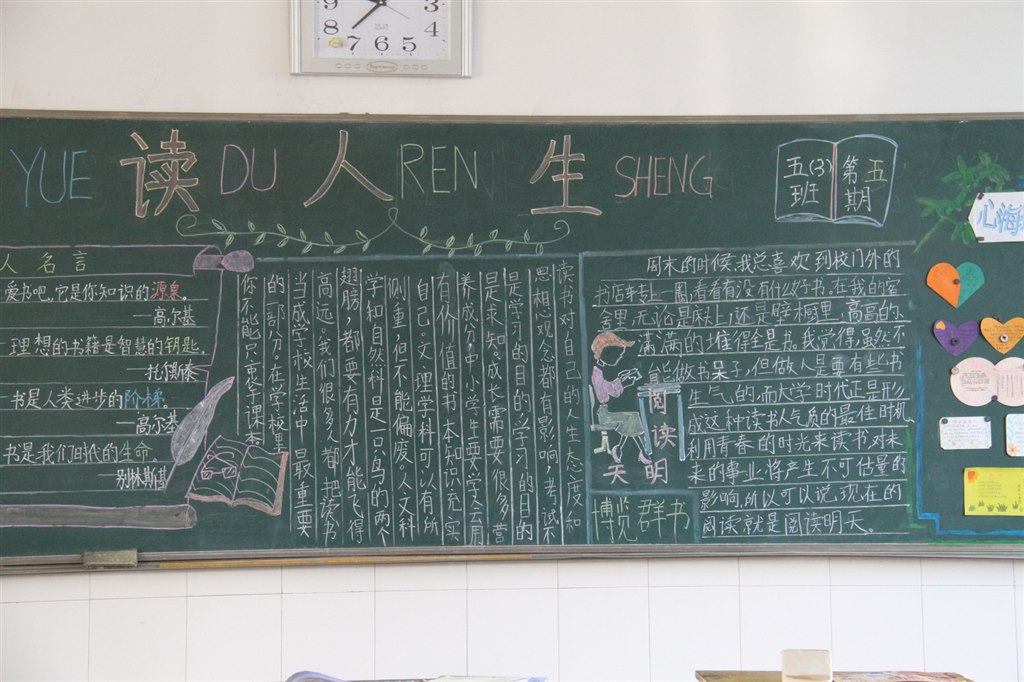 3
9
4
8
5
6
7
YUE 读 DU 人 REN 生 SHENG
五(3)班
第五期
心海
人名言
爱书吧,它是你知识的源泉。
—高尔基
理想的书籍是智慧的钥匙。
书是人类进步的阶梯
—高尔基
书是我们时代的生命
别林斯基
读书对自己的人生态度和
思想观念都有影响,考试不
是学习的目的,学习的目的
是求知。成长需要很多营
养成分,中小学生要学会用
有价值的书本知识充实
自己。文、理学科可以有所
侧重,但不能偏废。人文科
学和自然科是一只鸟的两个
翅膀,都要有力才能飞得
高远。我们很多人都把读书
当成学校生活中最重要
的一部分。在学校里
你不能只课本
周末的时候,我总喜欢到校门外的
书店转一圈,看看有没有什么好书.在我的宿
舍里,无论是床上,还是壁橱里,高高的、
满满的堆得全是书。我觉得,虽然不
能做书呆子,但做人是要有些书
生气的,而大学时代正是形
成这种读书人气质的最佳时机
利用青春的时光来读书对未
来的事业将产生不可估量的
影响所以可以说,现在的
阅读就是阅读明天。
阅读
明天
博览群书